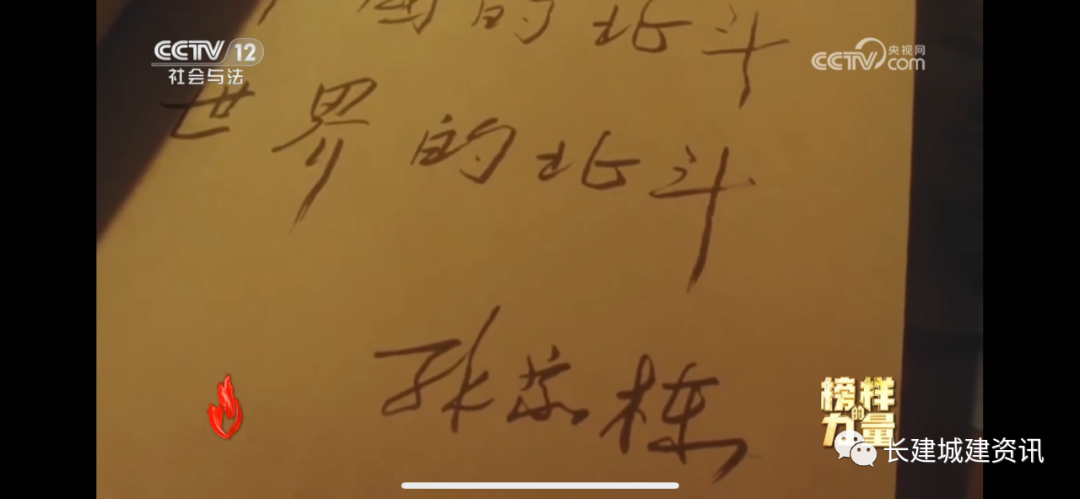 国的北斗
CCTV 12
社会与法
CCTV 央视网
com
世界的北斗
孙家栋
榜样的
力量
长建城建资讯